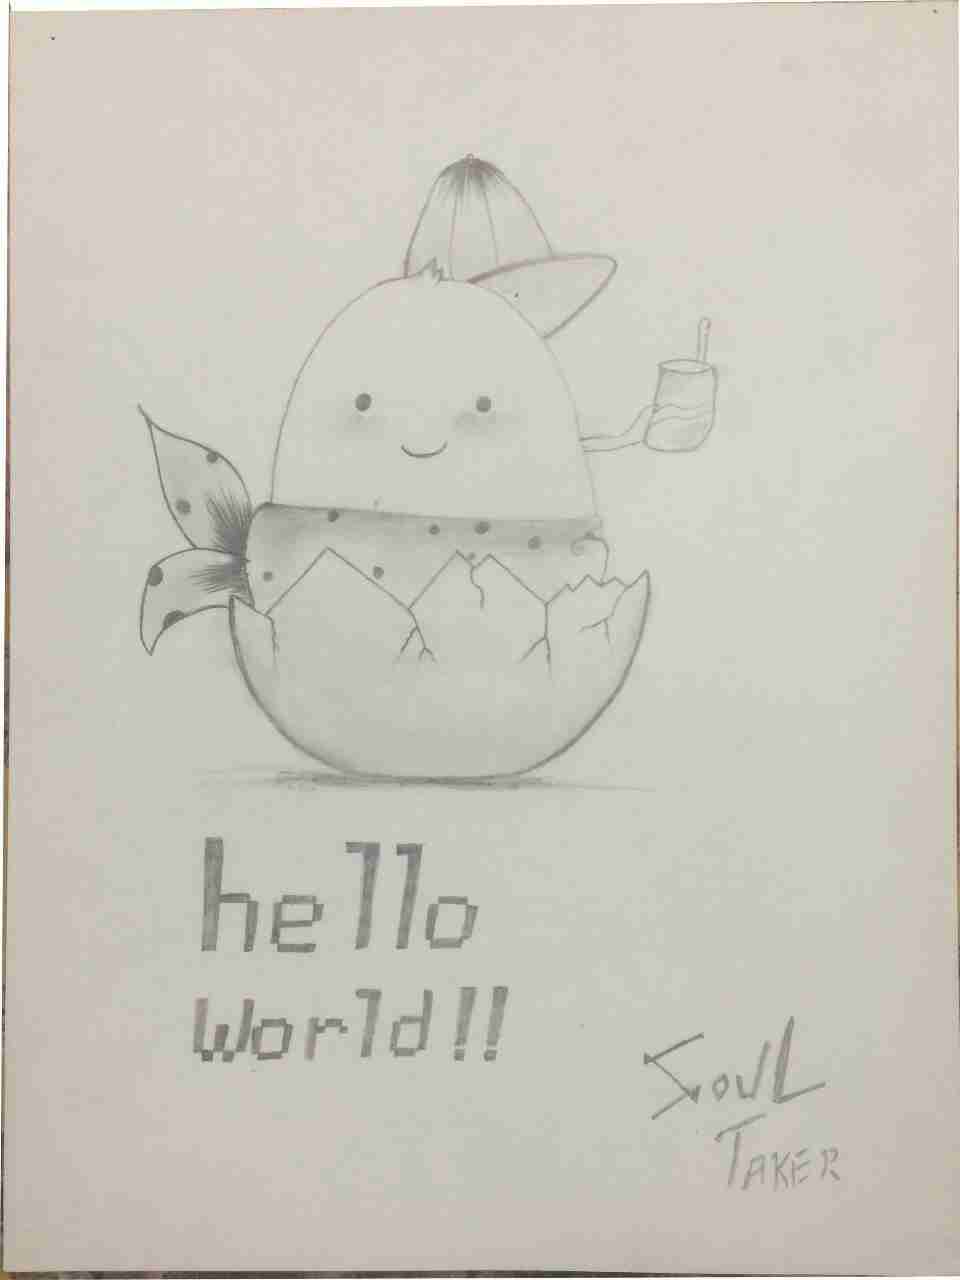 hello
world!!
SouL
TAKER